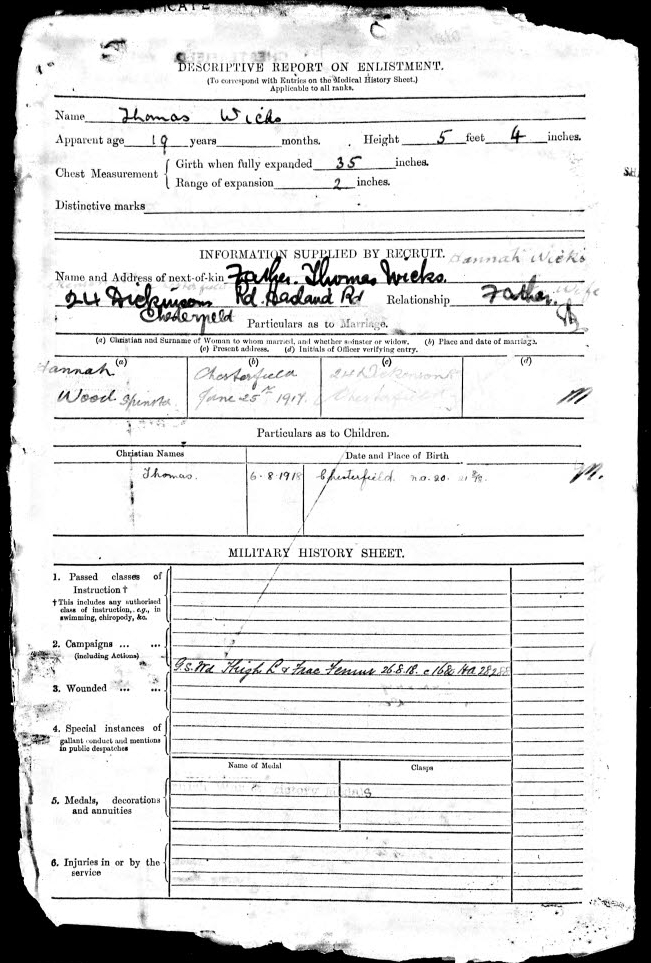 DESCRIPTIVE REPORT ON ENLISTMENT.
(To correspond with Entries on the Medical History Sheet.)
Applicable to all ranks.
Name Thomas Wicks
Apparent age 19 years months. Height 5 feet 4 inches.
Chest Measurement { Girth when fully expanded 35 inches.
Range of expansion 2 inches.
Distinctive marks
INFORMATION SUPPLIED BY RECRUIT. Hannah Wicks
Name and Address of next-of-kin Father. Thomas Wicks. Wife
24 Dickinsons Rd. Hasland Rd Relationship Father.
Chesterfield
Particulars as to Marriage.
(a) Christian and Surname of Woman to whom married, and whether spinster or widow. (b) Place and date of marriage.
(c) Present address. (d) Initials of Officer verifying entry.
(a) (b) (c) (d)
Hannah Chesterfield 24 Dickinsons
Wood Spinster June 25th 1917. Chesterfield M
Particulars as to Children.
Christian Names Date and Place of Birth
Thomas. 6-8-1918 Chesterfield. no. 20. M.
MILITARY HISTORY SHEET.
1. Passed classes of
Instruction †
† This includes any authorised
class of instruction, e.g., in
swimming, chiropody, &c.
2. Campaigns ... ...
(including Actions)
G.S. Wd Thigh L & Frac Femur 26.8.18.
3. Wounded ... ...
4. Special instances of
gallant conduct and mentions
in public despatches
Name of Medal Clasps
5. Medals, decorations
and annuities
6. Injuries in or by the
service